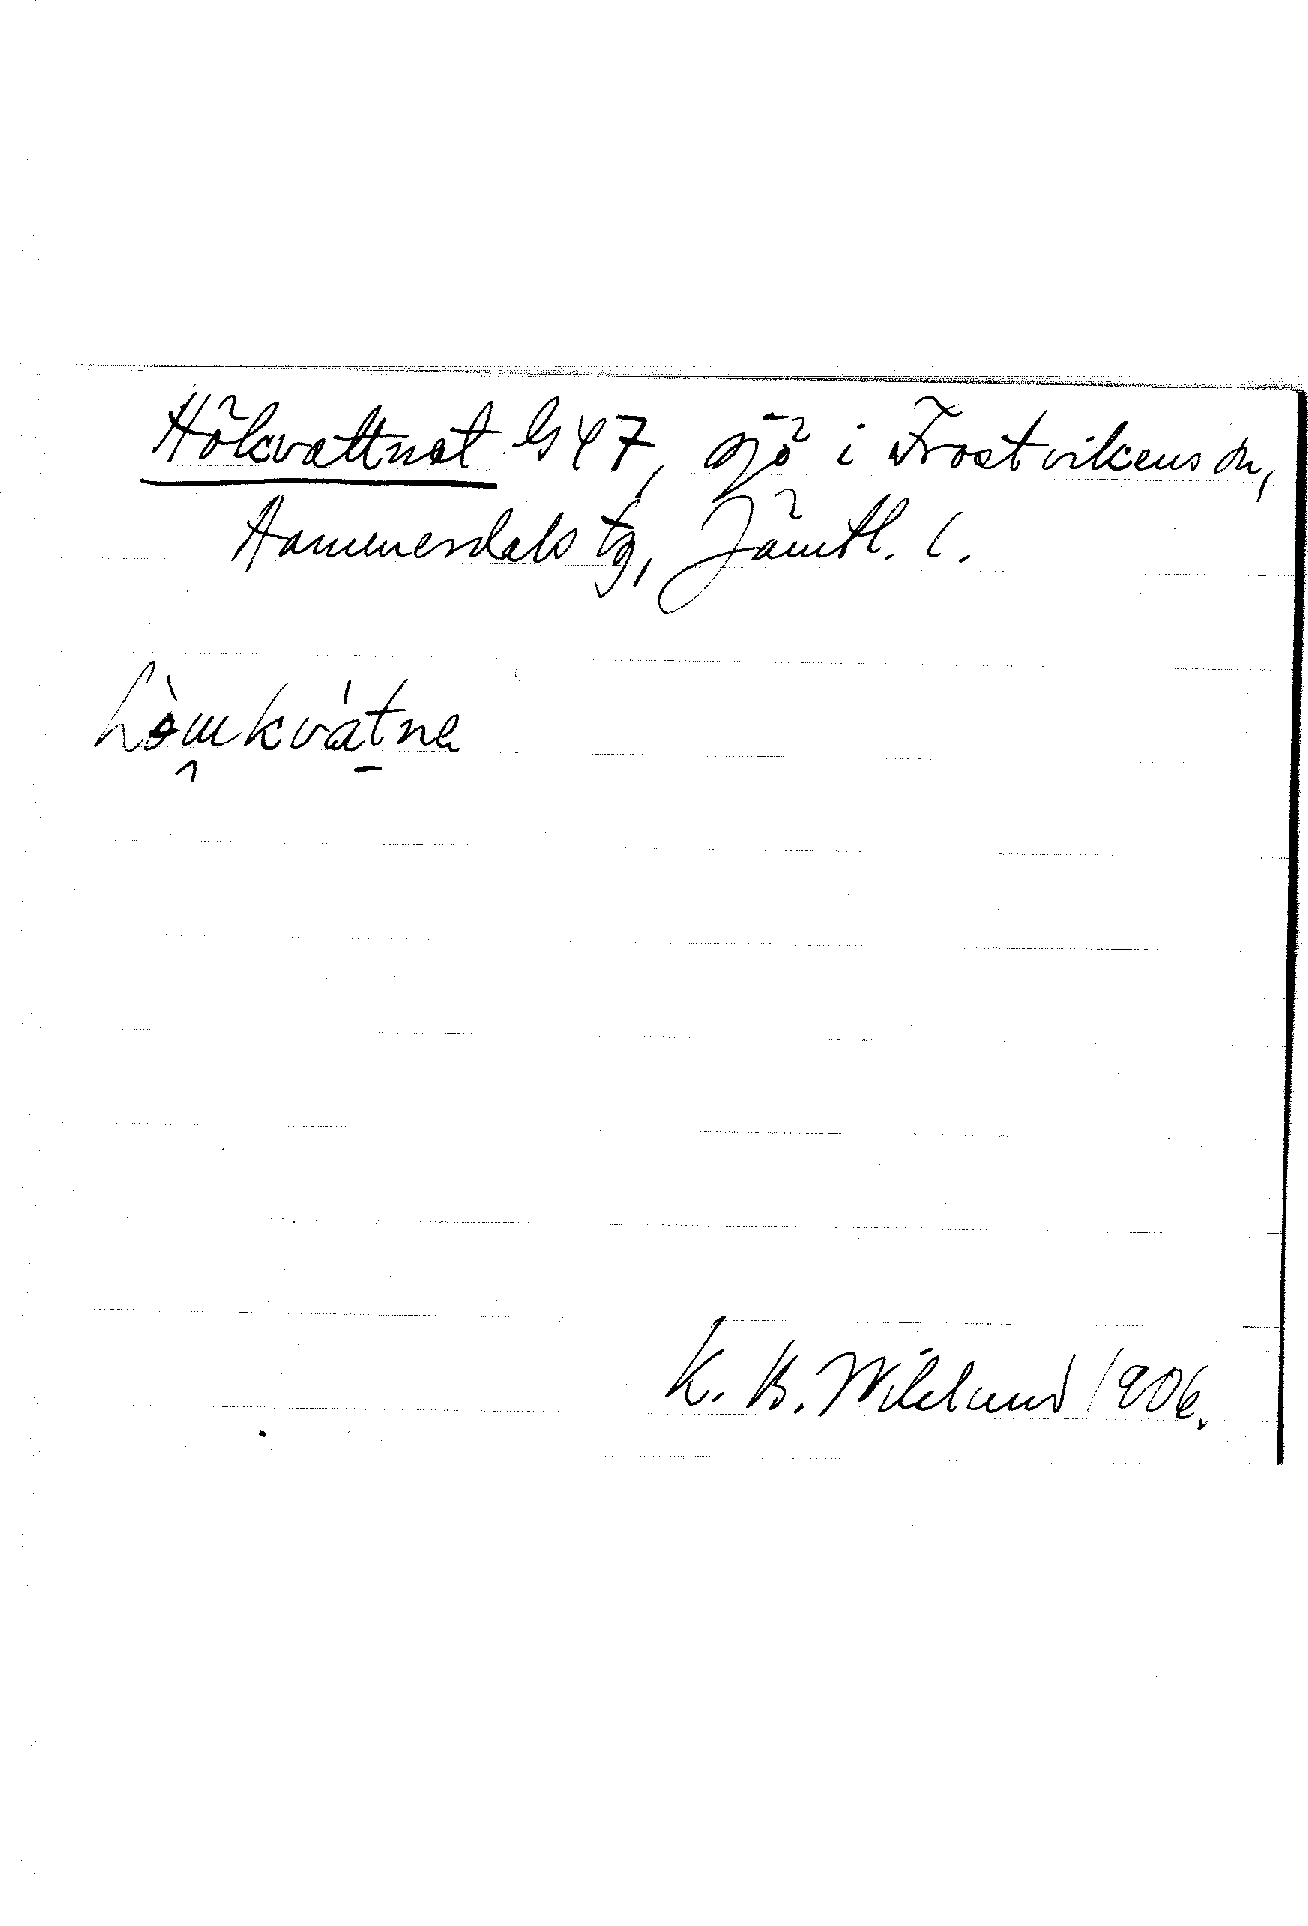 Hökvattnet G47, sjö i Frostvikens sn,
Hammerdals tg, Jämtl. l.
K. B. Wiklund 1906.